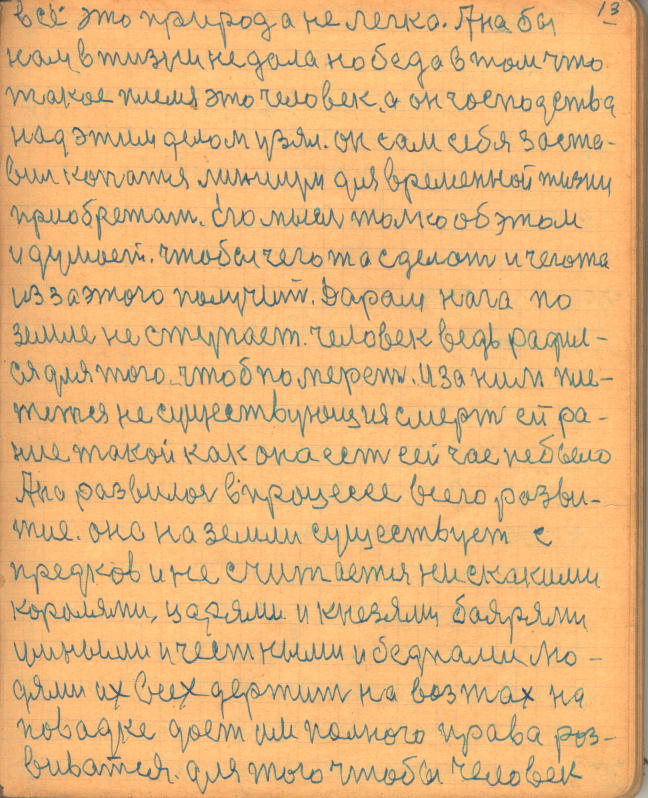 13
всё это природа не легко. Ана бы
нам в тизни не дала но беда в том что
такое племя это человек, а он господства
над этим делом узял. он сам себя заста-
вил копатя минимум для временной тизни
приобретат. Его мысл толко об этом
и думает. чтобы чегота сделат и чегота
из за этого получит. Дарам нага по
земле не ступает. человек ведь радил-
ся для того. чтоб помереть. И за ним пле-
тется не существующия смерт ей ра-
ние такой как она ест сей час небыло
Ана развилоя в процессе всего разви-
тие. она на земли существует с
предков и не считается нискакими
королями, царями и князями баярями
умными и честными и беднами лю-
дями их всех дертит на возтах на
повадке доет им полного права роз-
виватся. для того чтобы человек